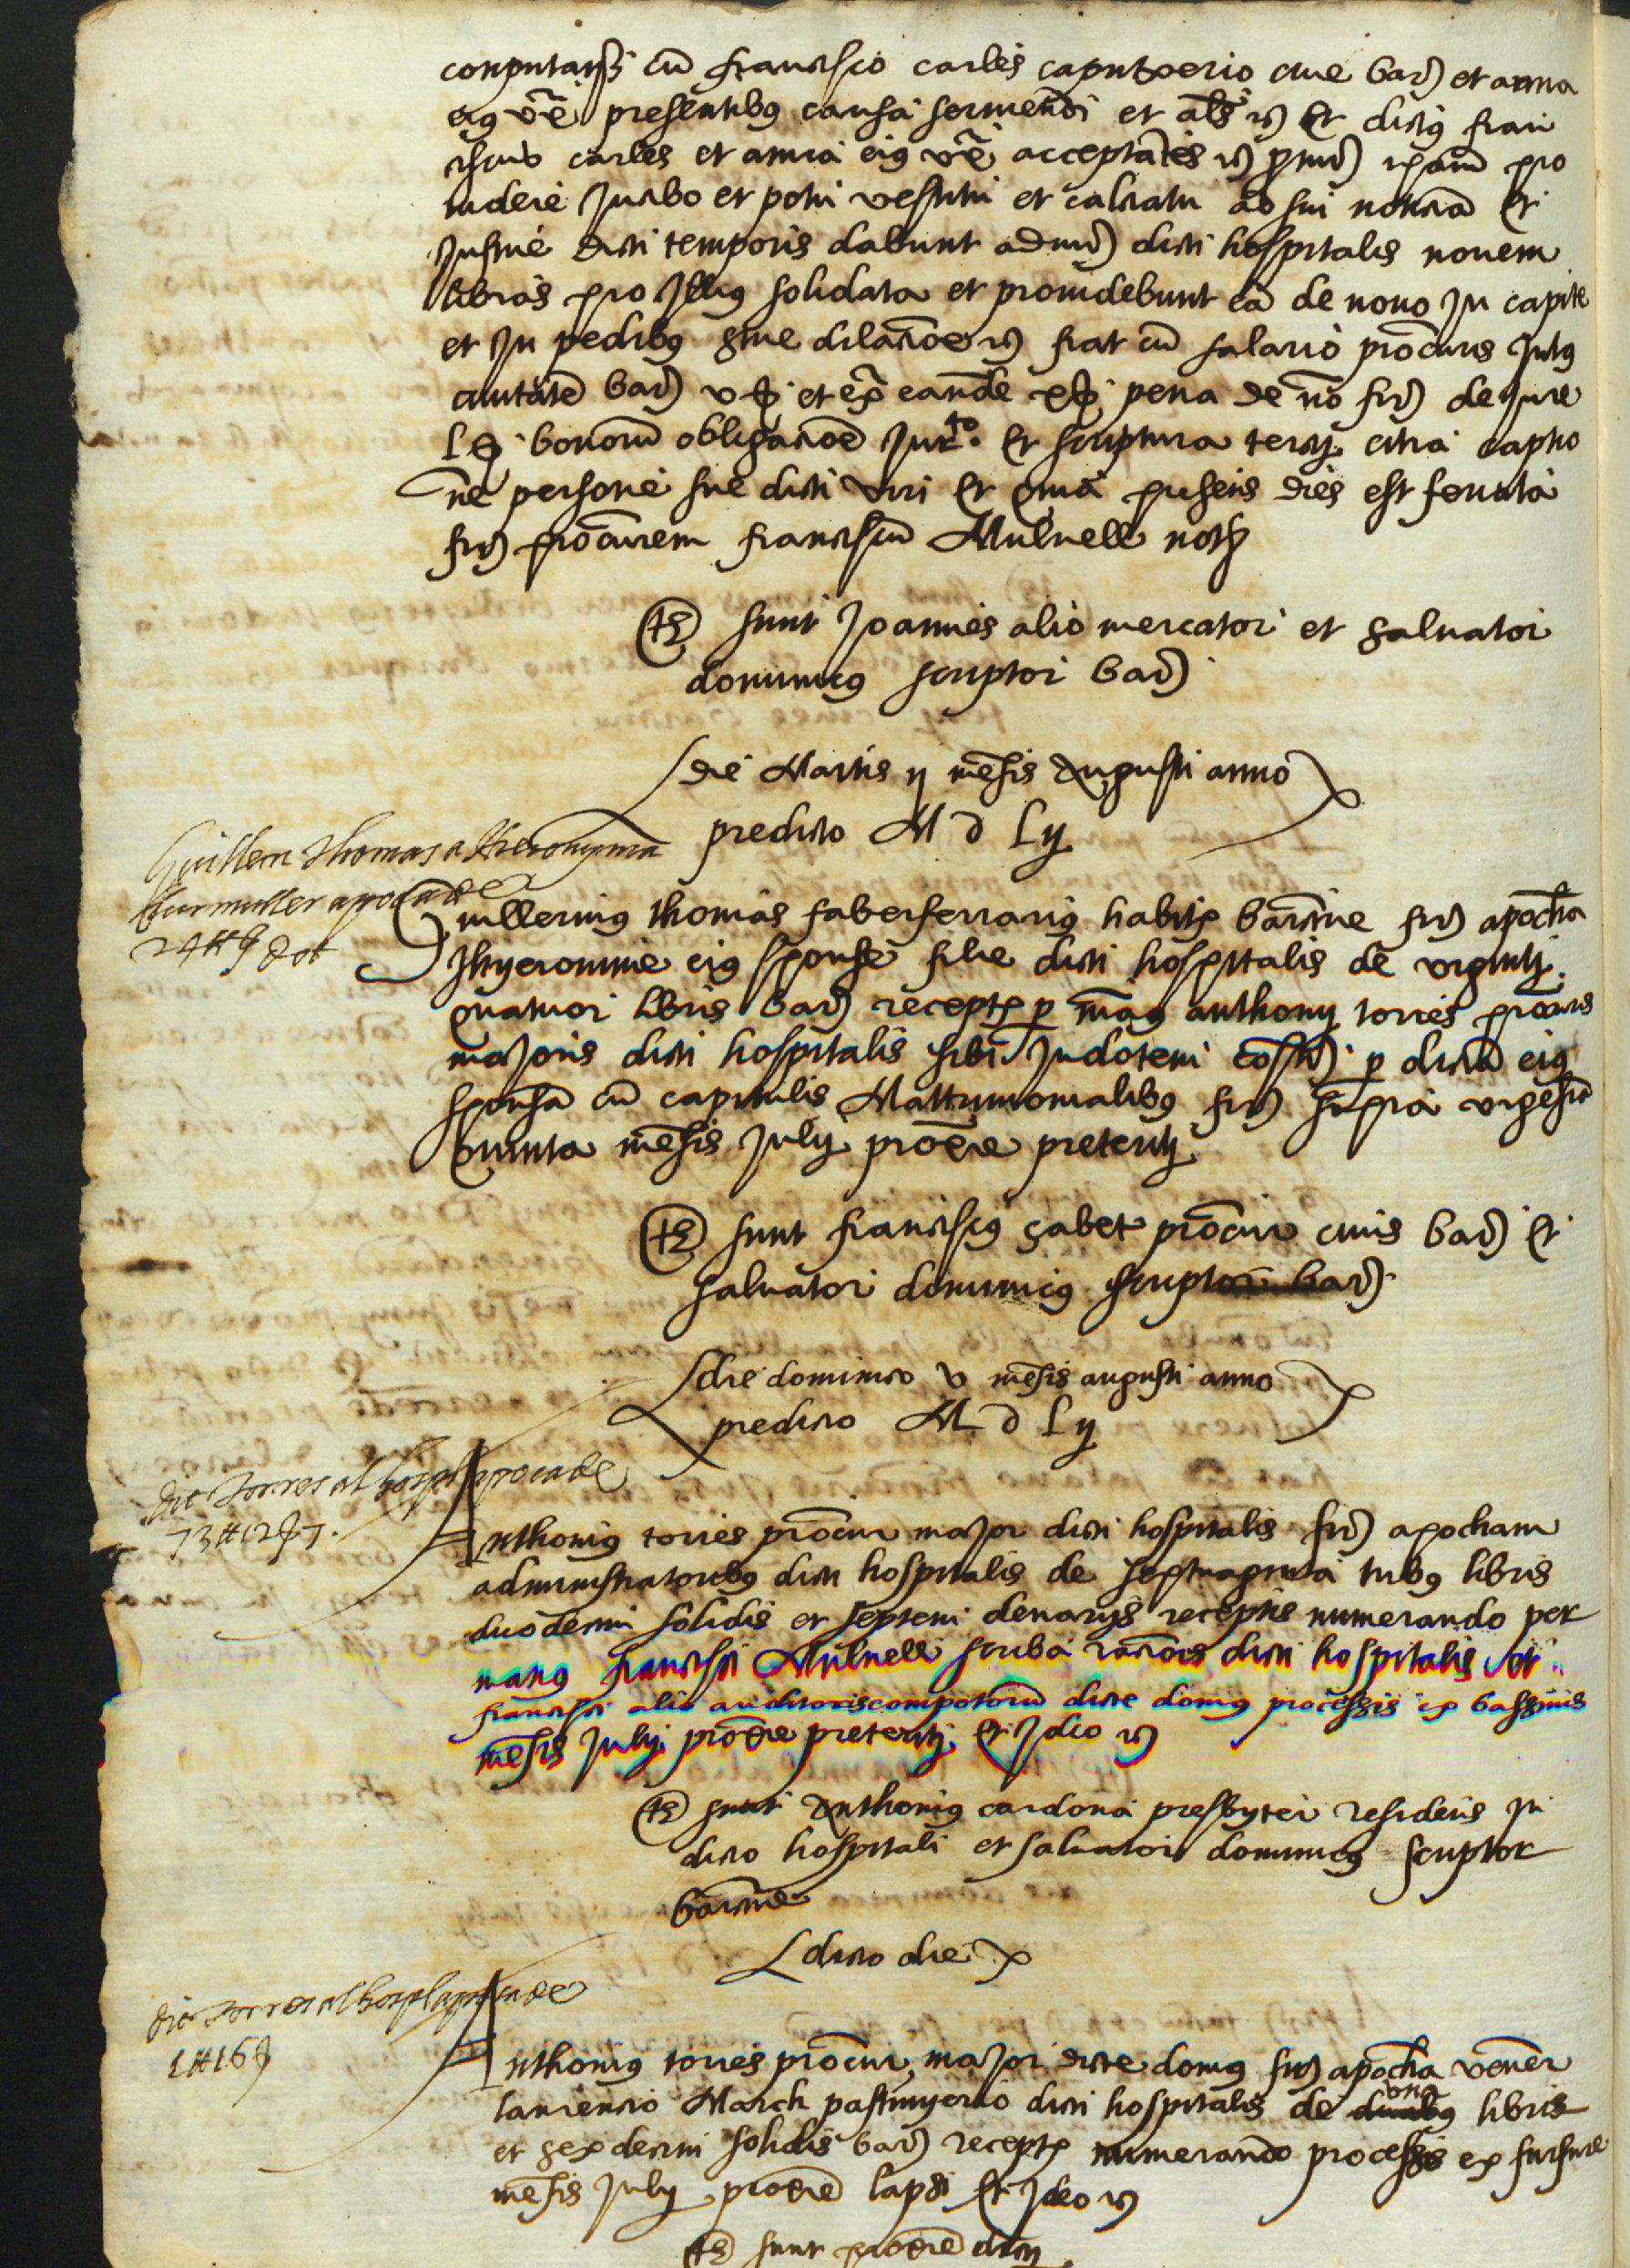 computandum cum Francisco carles caputxerio cive Barn et anna
eius uxe presentibus causa serviendi et als rc Et dictus fran
ciscus carles et anna eius uxe acceptantes rc promitt ipsam pro
videre In cibo et potu vestitu et calciatu ad sui noticia Et
In fine dicti temporis dabunt admin dicti hospitalis novem
libras pro Illius solidata et providebunt ea de novo In capite
et In pedibus sine dilacioe rc fiat cu salario procuris Intus
civitate Barn v ss et ex eande x ss pena de no fir de Jure
L ss bonoru obligacioe Jurto Et scriptura tercij citra captio
ne persone sue dicti viri Et quia presens dies est feriata
fir procurem franciscu Mulnell noth
Ts sunt Joannes alio mercator et salvator
dominicus scriptor Barn
die Martis ij mesis Augusti anno
predicto M D Lij
Guillem Thomas a Hieronyma
apoca de
24 ll s dot
Guillermus thomas faberferrarius habits barcine fir apocha
Hyeronime eius sponse filie dicti hospitalis de viginti
quatuor libris Barn recepts p manus anthonij torres procuris
majoris dicti hospitalis sibi In dotem costit p dicta eius
sponsa cu capitulis Mattrimonialibus fir supra vigesia
quinta mesis Julij proxe preteriti
Ts sunt franciscus çabet procur civis Barn Et
salvator dominicus scriptor Barn
die dominico v mesis augusti anno
predicto M D Lij
dit Torres al hospl apoca de
73 ll 12 s 7
Anthonius torres procur major dicti hospitalis fir apocham
administratoribus dicti hospitalis de septuaginta tribus libris
duodecim solidis et septem denarijs receptis numerando per
manus francisci Mulnell scriba raciois dicti hospitalis et
francisci alio auditoris compotoru dicte domus processis ex bassinis
mesis Julij proxe preteriti Et Ideo rc
Ts sunt Anthonius cardona presbyter residens In
dicto hospitali et salvator dominicus scriptor
barcine
dicto die
dit torres al hospl apoca de
1 ll 16 s
Anthonius torres procur major dicte domus fir apocha vener
laurencio March pastinyerio dicti hospitalis de duabus una libris
et sexdecim solidis barn recepts numerando processis ex furfure
mesis July proxe lapsi Et Ideo rc
Ts sunt proxe dicti